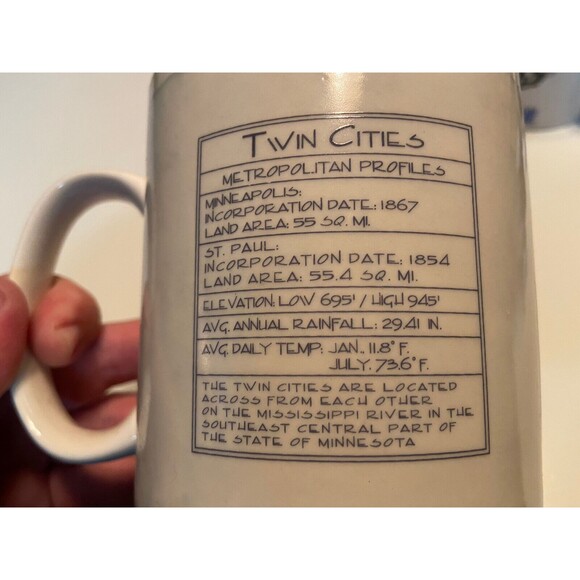 TWIN CITIES
METROPOLITAN PROFILES
MINNEAPOLIS:
INCORPORATION DATE: 1867
LAND AREA: 55 SQ. MI.
ST. PAUL:
INCORPORATION DATE: 1854
LAND AREA: 55.4 SQ. MI.
ELEVATION: LOW 695' / HIGH 945'
AVG. ANNUAL RAINFALL: 29.41 IN.
AVG. DAILY TEMP: JAN., 11.8° F.
JULY, 73.6° F.
THE TWIN CITIES ARE LOCATED
ACROSS FROM EACH OTHER
ON THE MISSISSIPPI RIVER IN THE
SOUTHEAST CENTRAL PART OF
THE STATE OF MINNESOTA